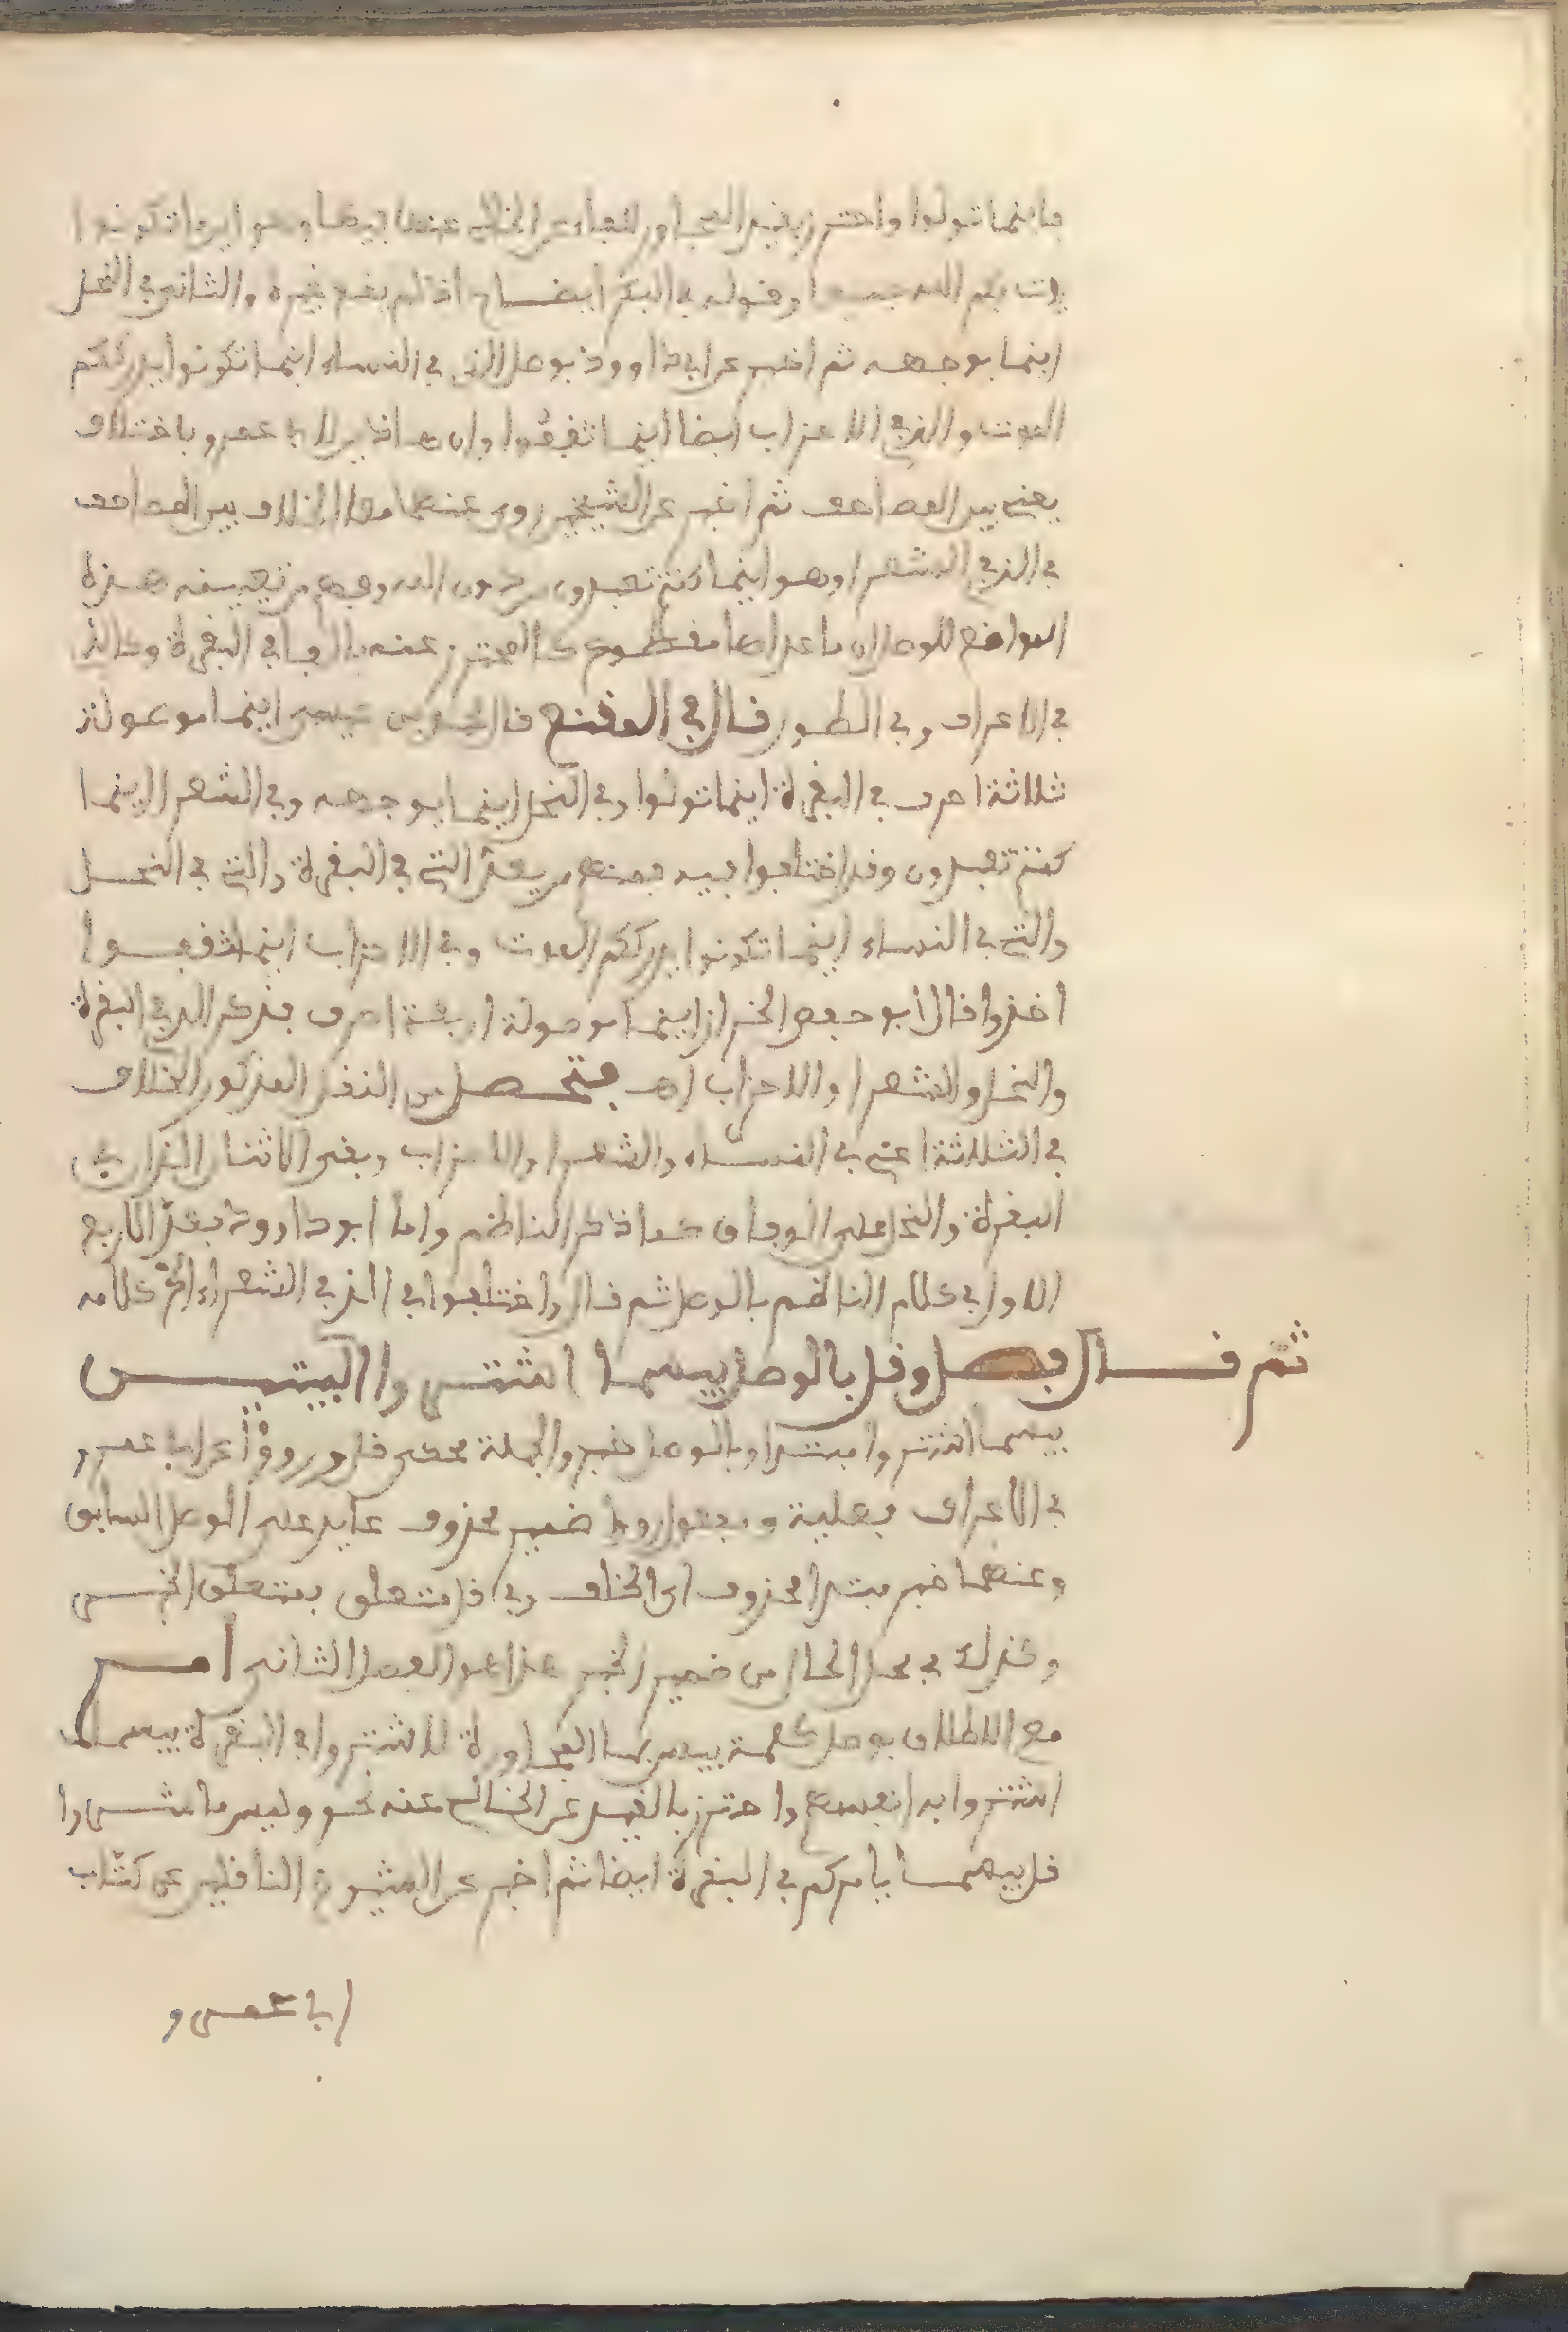 فاينما تولوا واحترز بقيد المجاور للفاء عن الخالي عنها بيضا وهو اين ما تكونوا
يات بكم الله جميعا وقوله في البكر ايضاح اذ لم يقع غيره والثاني في النحل
اينما يوجهه ثم اخبر عن ابي داوود بوصل الذي في النساء اينما تكونوا يدرككم
الموت والذي في الاحزاب ايضا اينما ثقفوا وان هاذين لابي عمرو باختلاف
يعني بين المصاحف ثم اخبر عن الشيخين روى عنهما معا الخلاف بين المصاحف
في الذي في الشعرا وهو اينما كنتم تعبدون من دون الله وفهم من تعيينه هذه
المواضع للوصل ان ما عداها مقطوع كالمحترز عنه بالفاء في البقرة وكالذي
في الاعراف وفي الطور قال في المقنع قال محمد بن عيسى اينما موصولة
ثلاثة احرف في البقرة اينما تولوا وفي النحل اينما يوجهه وفي الشعرا اينما
كنتم تعبدون وقد اختلفوا فيه فمنهم من يعد التي في البقرة والتي في النحل
والتي في النساء اينما تكونوا يدرككم الموت وفي الاحزاب اينما ثقفوا
اخذوا قال ابو حفص الخزاز اينما موصولة اربعة احرف فذكر الذي في البقرة
والنحل والشعرا والاحزاب اهـ فتحصل من النقل المذكور الخلاف
في الثلاثة اعني في النساء والشعرا والاحزاب وبقي الاثنان اللذان في
البقرة والنحل على الوفاق كما ذكر الناظم واما ابو داوود فعد الاربع
الاول في كلام الناظم بالوصل ثم قال واختلفوا في الذي في الشعراء الخ كلامه
ثم قال فصل وقل بالوصل بيسما اشتروا البيتين
بيسما اشتروا مبتدا وبالوصل خبر والجملة محكى قل ورووا عن ابي عمرو
في الاعراف فعلية ومفعول رووا ضمير محذوف عايد على الوصل السابق
وعنهما خبر مبتدا محذوف اي الخلف وفي قل متعلق بمتعلق الخبر
وكذلك في محل الحال من ضمير الخبر هذا هو الفصل الثاني امر
مع الاطلاق بوصل كلمة بيس بما المجاورة لاشتروا في البقرة بيسما
اشتروا به انفسهم واحترز بالقيد عن الخالي عنه نحو ولبيس ما شروا
قل بيسما يامركم في البقرة ايضا ثم اخبر عن الشيوخ الناقلين عن كتاب
ابي عمرو